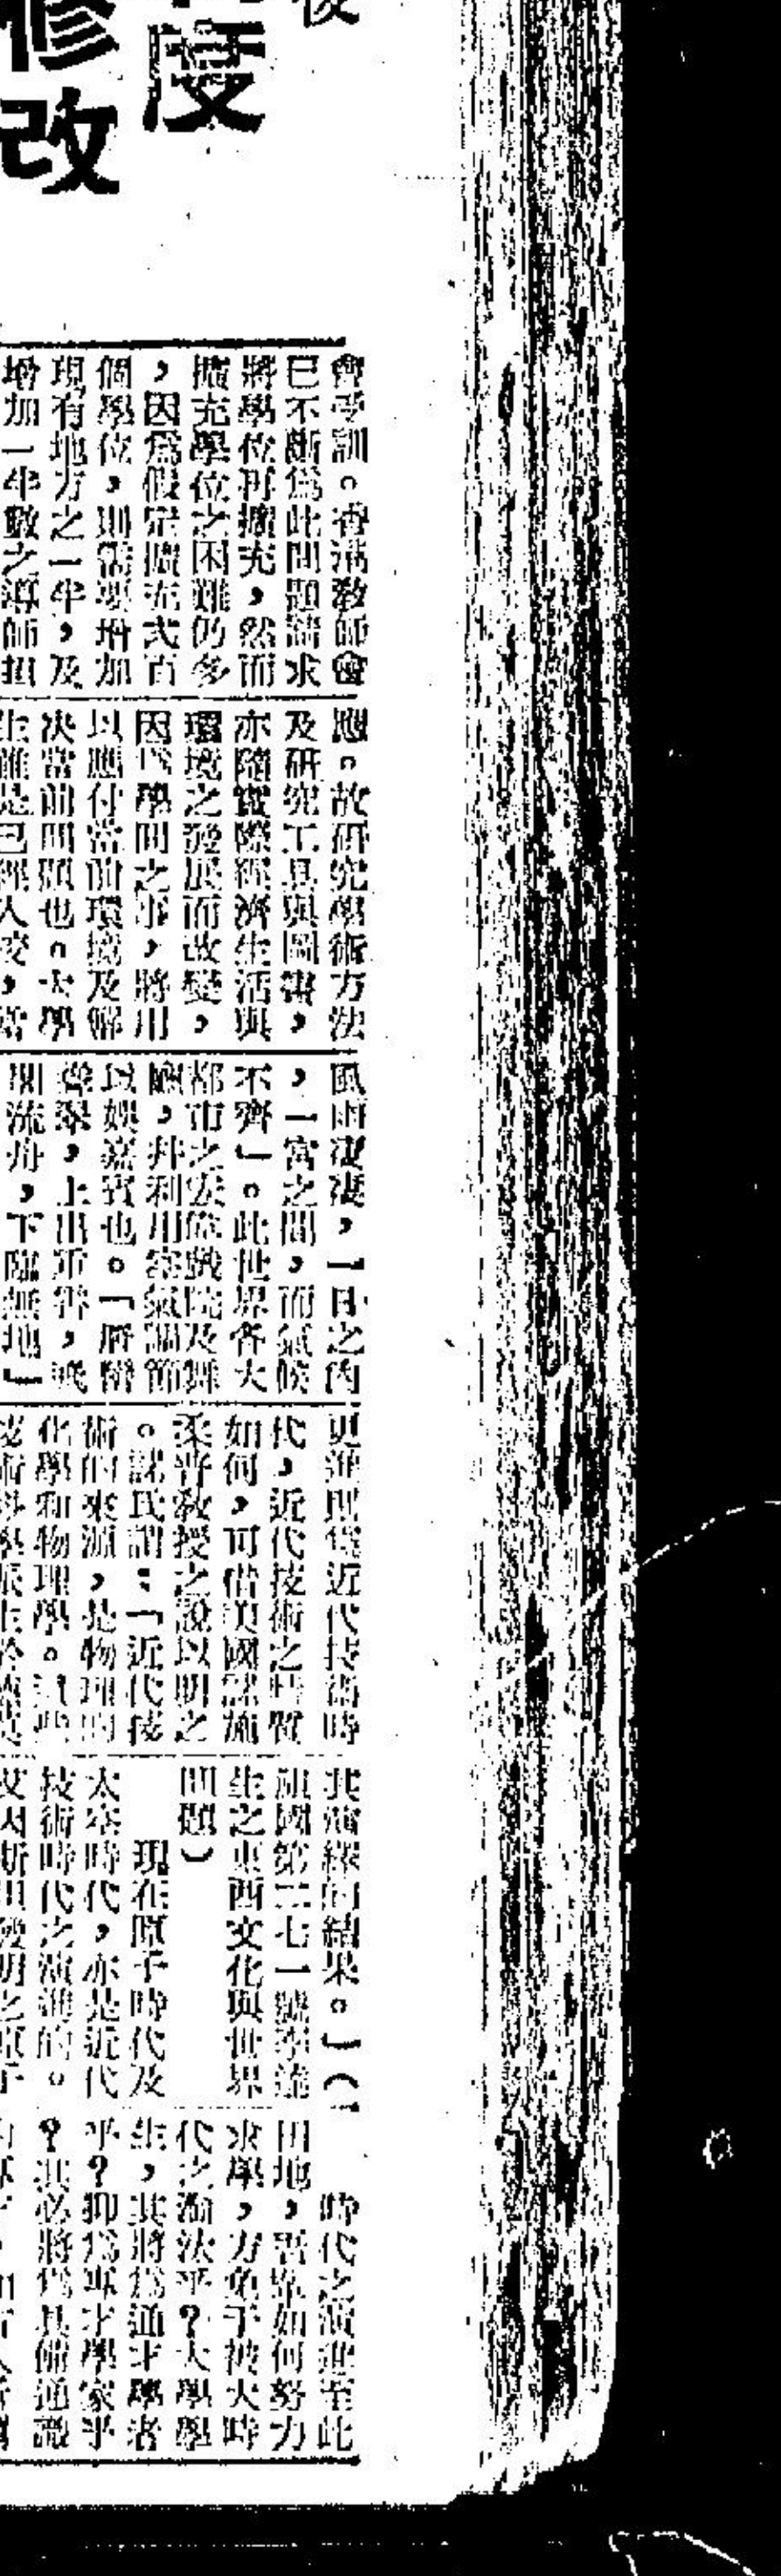 後
度
修改
會受訓。香港敎師會
已不斷爲此問題請求
將學位再擴充，然而
擴充學位之困難仍多
，因爲假定擴充弍百
個學位，則需要增加
現有地方之一半，及
增加一半數之導師担
應。故研究學術方法
及研究工具與圖書，
亦隨實際經濟生活與
環境之發展而改變，
因爲學問之事，將用
以應付當前環境及解
决當前問題也。大學
生雖是已經入校，
風雨凄凄，一日之內
，一宮之間，而氣候
不齊」。此世界各大
都市之安﻿戲院及舞
廳，幷利用空氣調節
以娛嘉賓也。「層巒
聳翠，上出重霄，
流丹，下臨無地」
更進則爲近代技術時
代，近代技術之特質
如何，可借美國諾施
柔普敎授之說以明之
。諾氏謂：「近代技
術的來源，是物理的
化學和物理學。這些
技術科學派生於
其演繹的結果。」（
祖國第二七一號李達
生之東西文化與世界
問題）
現在原子時代及
太空時代，亦是近代
技術時代之演進的。
艾因斯坦發明之原子
時代之演進至此
田地，吾輩如何努力
求學，方免于被大時
代之淘汰乎？大學學
生，其將爲通才學者
乎？抑爲專才學家乎
？其必將爲具備通識